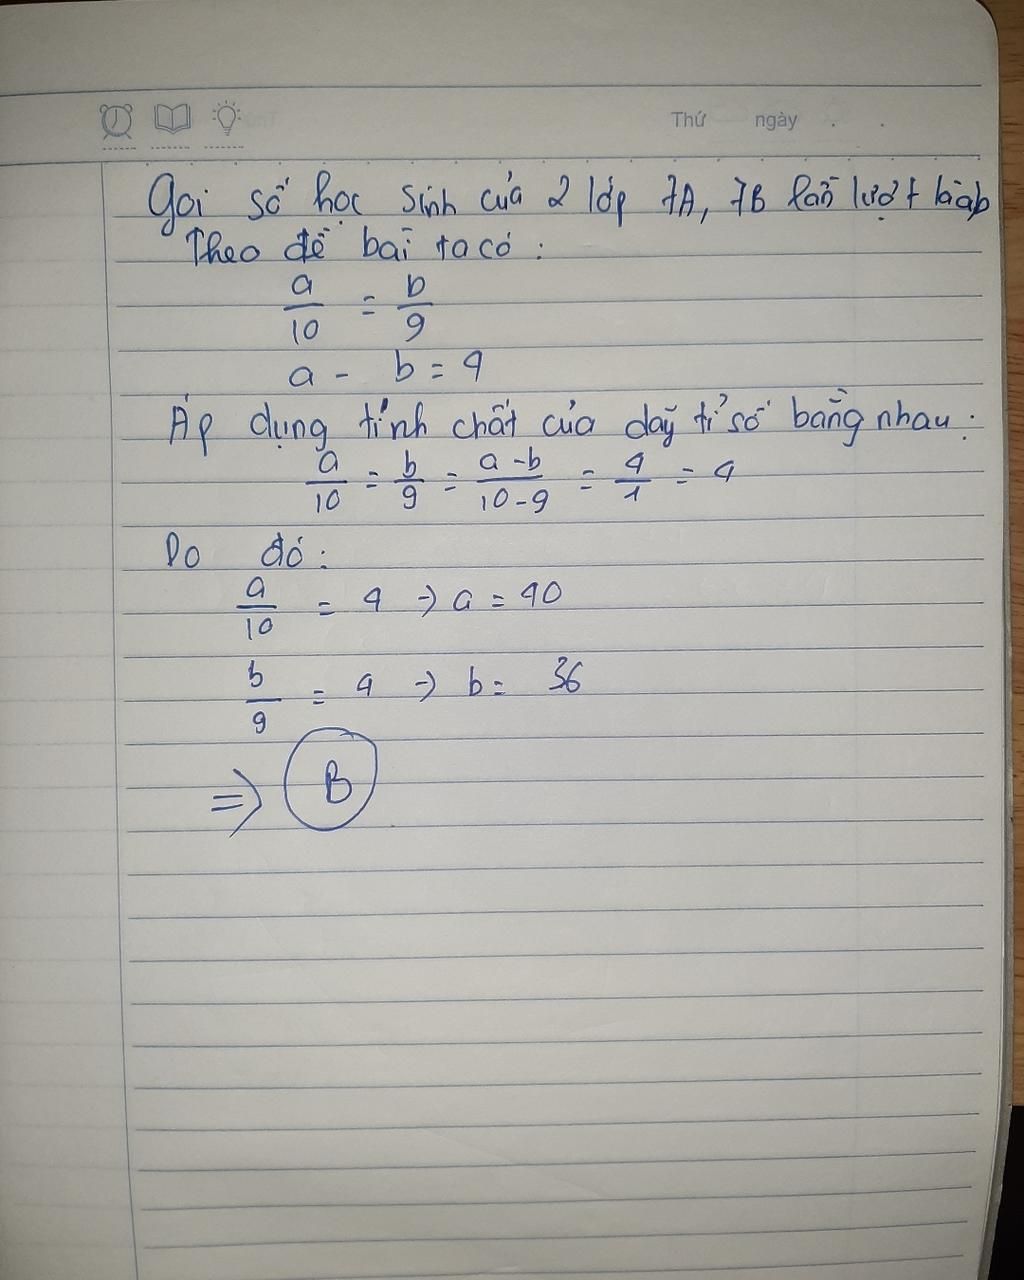 Thứ ngày . .
Gọi số học sinh của 2 lớp 7A, 7B lần lượt là a,b
Theo đề bài ta có :
a/10 = b/9
a - b = 4
Áp dụng tính chất của dãy tỉ số bằng nhau :
a/10 = b/9 = a-b/10-9 = 4/1 = 4
Do đó :
a/10 = 4 -> a = 40
b/9 = 4 -> b = 36
=> B